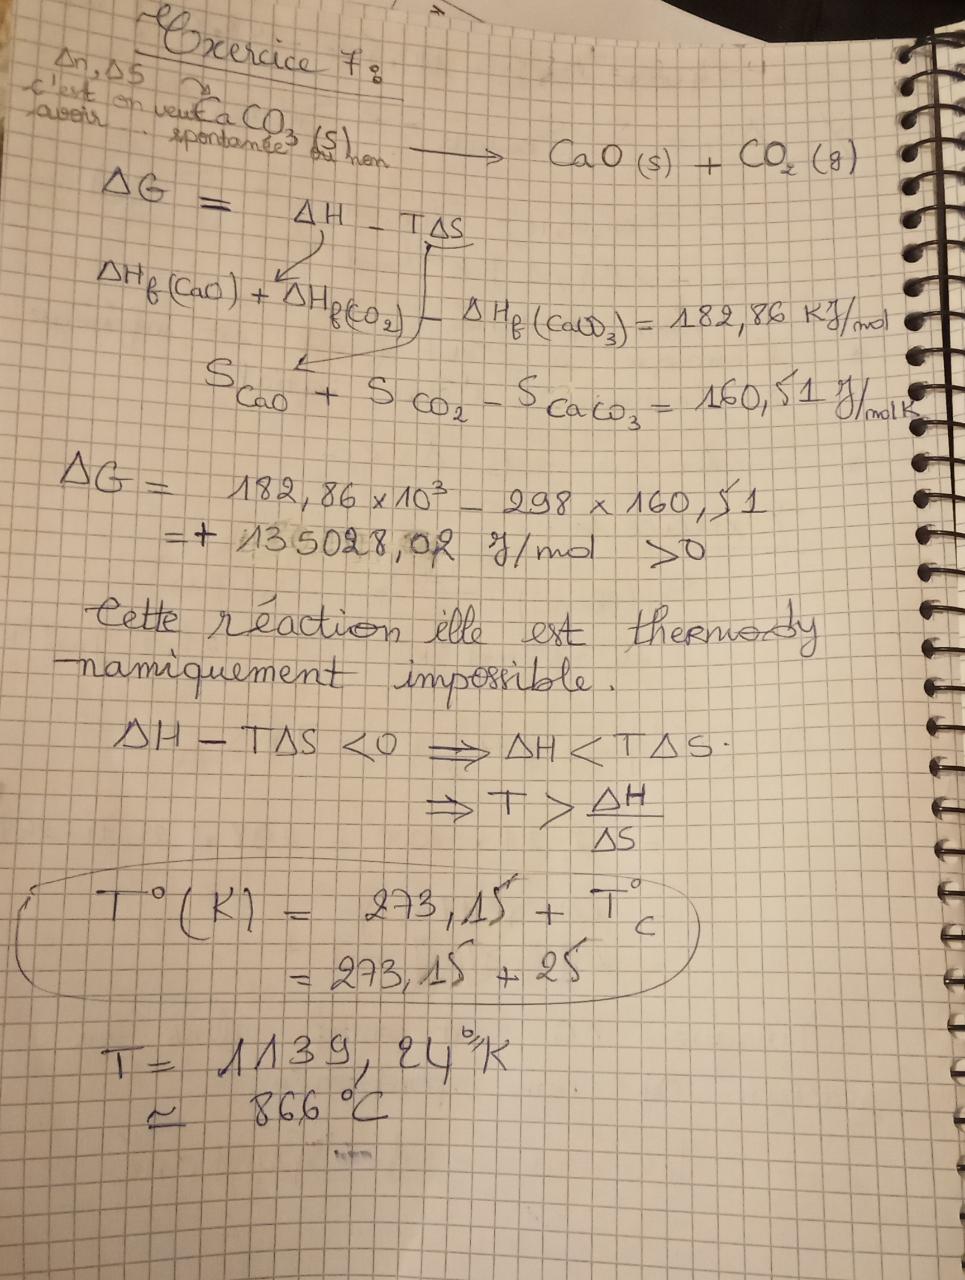 Exercice 7:
Δn, ΔS
c'est on veut
avoir spontanée ou non
CaCO₃ (s) ⟶ CaO (s) + CO₂ (g)
ΔG = ΔH - TΔS
ΔHf (CaO) + ΔHf(CO₂) - ΔHf (CaCO₃) = 182,86 KJ/mol
S CaO + S CO₂ - S CaCO₃ = 160,51 J/molK
ΔG = 182,86 × 10³ - 298 × 160,51
= + 135028,02 J/mol > 0
Cette réaction elle est thermody
namiquement impossible.
ΔH - TΔS < 0 ⟹ ΔH < TΔS.
⟹ T > ΔH/ΔS
T° (K) = 273,15 + T°C
= 273,15 + 25
T = 1139,24 °K
≃ 866 °C